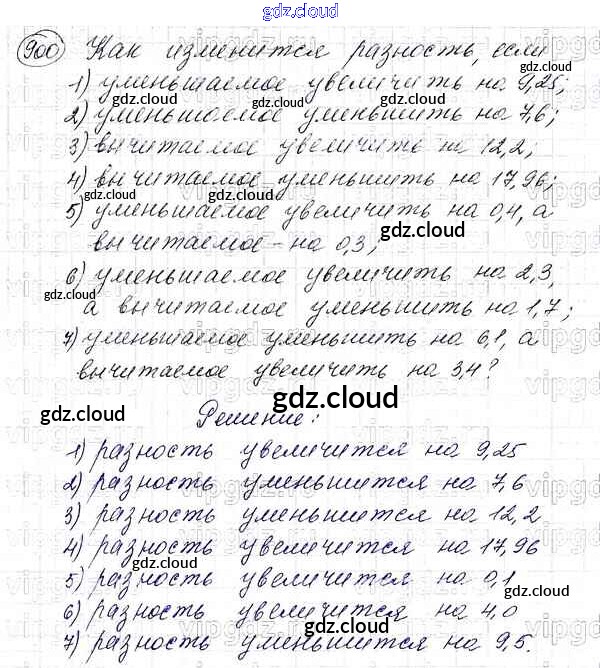 gdz.cloud
900 Как изменится разность, если
1) уменьшаемое увеличить на 9,25;
gdz.cloud gdz.cloud
2) уменьшаемое уменьшить на 7,6;
gdz.cloud
3) вычитаемое увеличить на 12,2;
4) вычитаемое уменьшить на 17,96;
gdz.cloud gdz.cloud
5) уменьшаемое увеличить на 0,4, а
вычитаемое - на 0,3;
gdz.cloud
6) уменьшаемое увеличить на 2,3,
gdz.cloud
а вычитаемое уменьшить на 1,7;
7) уменьшаемое уменьшить на 6,1, а
gdz.cloud gdz.cloud
вычитаемое увеличить на 3,4?
gdz.cloud gdz.cloud
Решение:
1) разность увеличится на 9,25
2) разность уменьшится на 7,6
3) разность уменьшится на 12,2
4) разность увеличится на 17,96
gdz.cloud
5) разность увеличится на 0,1
gdz.cloud
6) разность увеличится на 4,0
gdz.cloud
7) разность уменьшится на 9,5.
gdz.cloud